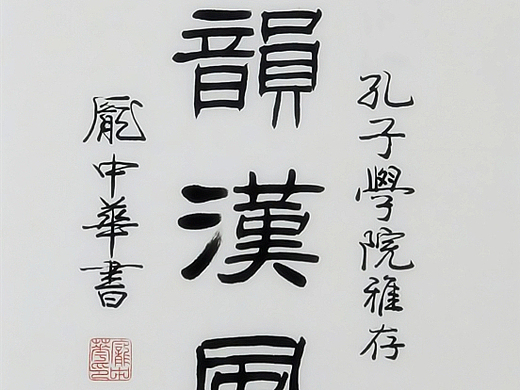 孔子學院雅存
韻漢風
龐中華書
龐中華印